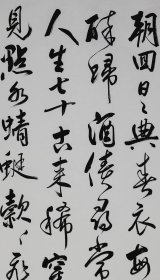 朝回日々典春衣每
醉歸酒債尋常
人生七十古来稀穿
見點水蜻蜓款々飛